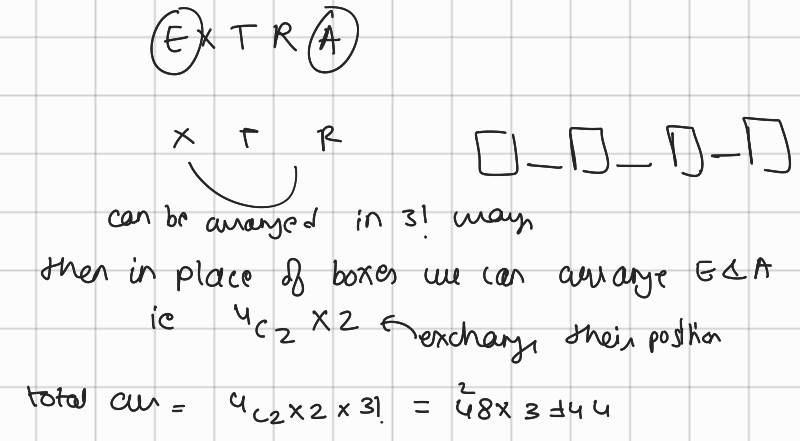 EXTRA
X T R
can be arranged in 3! ways
then in place of boxes we can arrange E & A
ie ⁴C₂ × 2 ← exchange their position
total arr = ⁴C₂ × 2 × 3! = 48 × 3 = 144